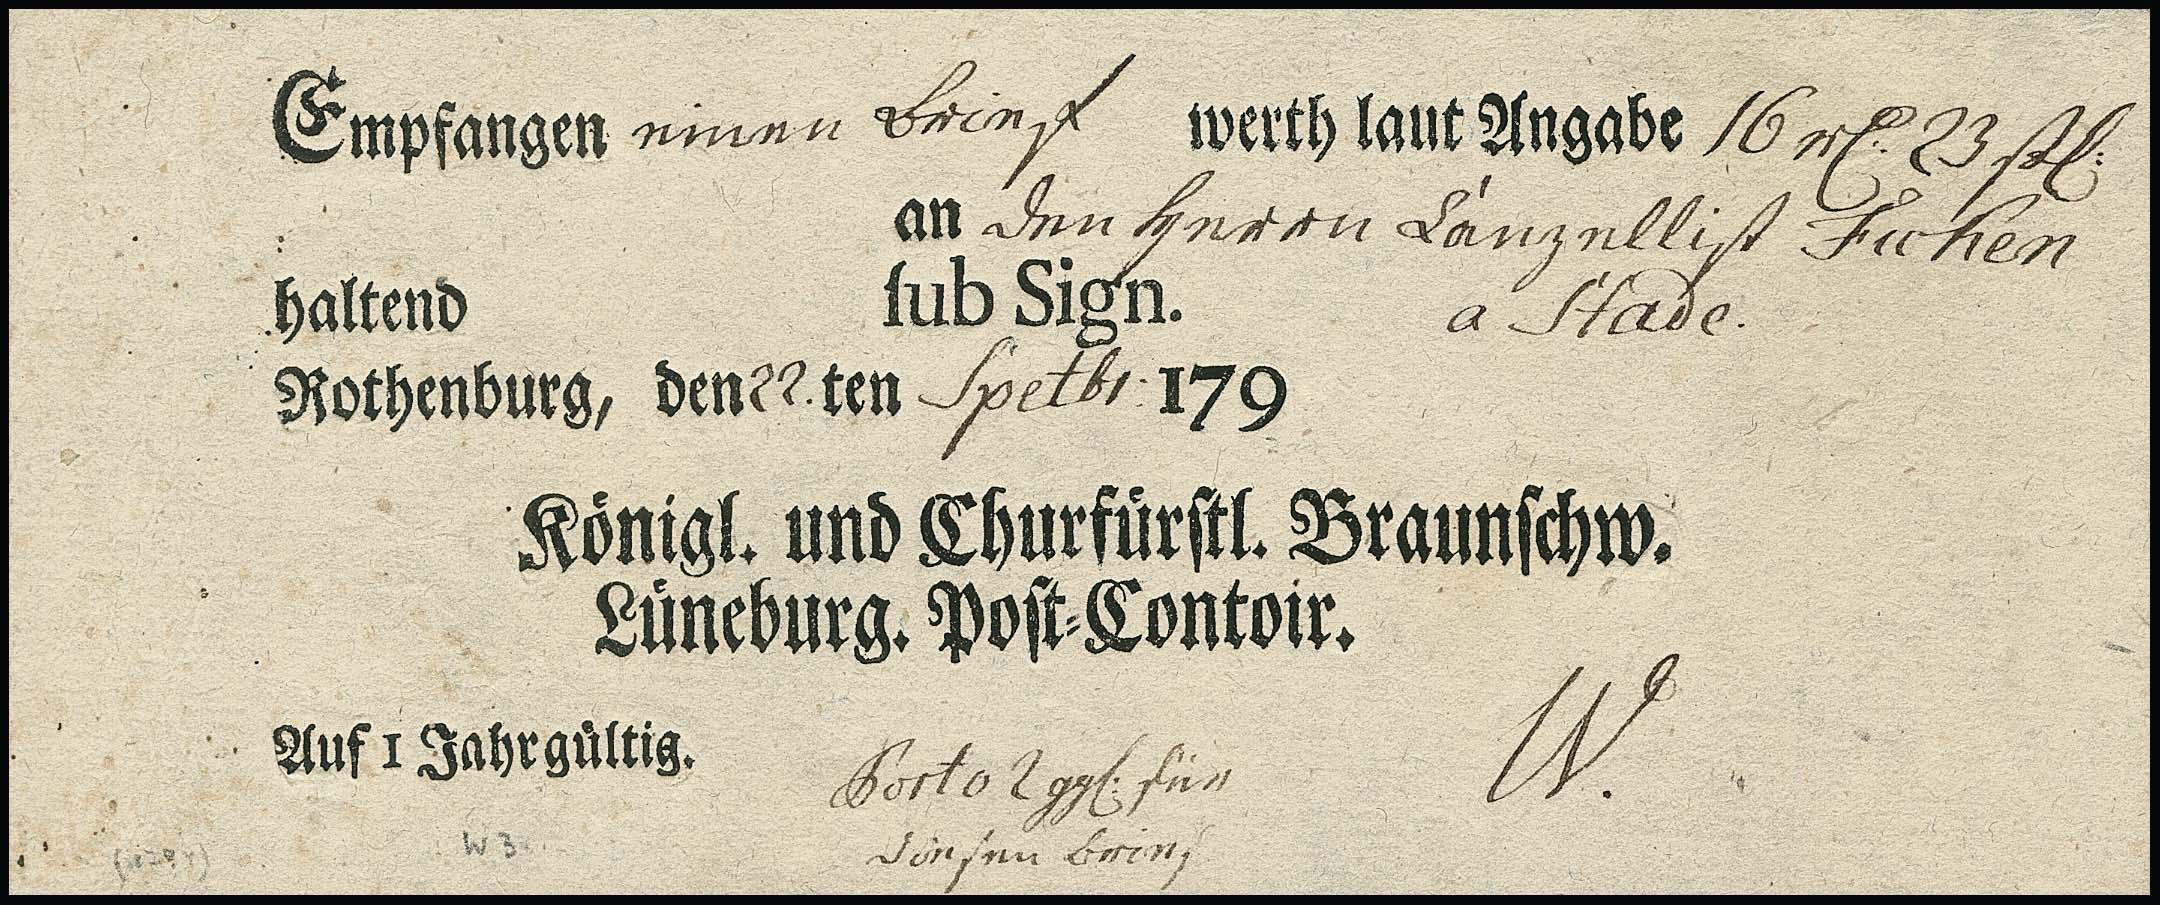 Empfangen einen Brief werth laut Angabe 16 rl. 23 stl:
an den Herrn Canzellist Ficken
haltend ſub Sign. a Stade.
Rothenburg, den 22. ten Spetbr: 179
Königl. und Churfürſtl. Braunſchw.
Lüneburg. Poſt-Contoir.
W.
Auf 1 Jahr gültig.
Porto 2 ggl: für
dießen Brief
W 3